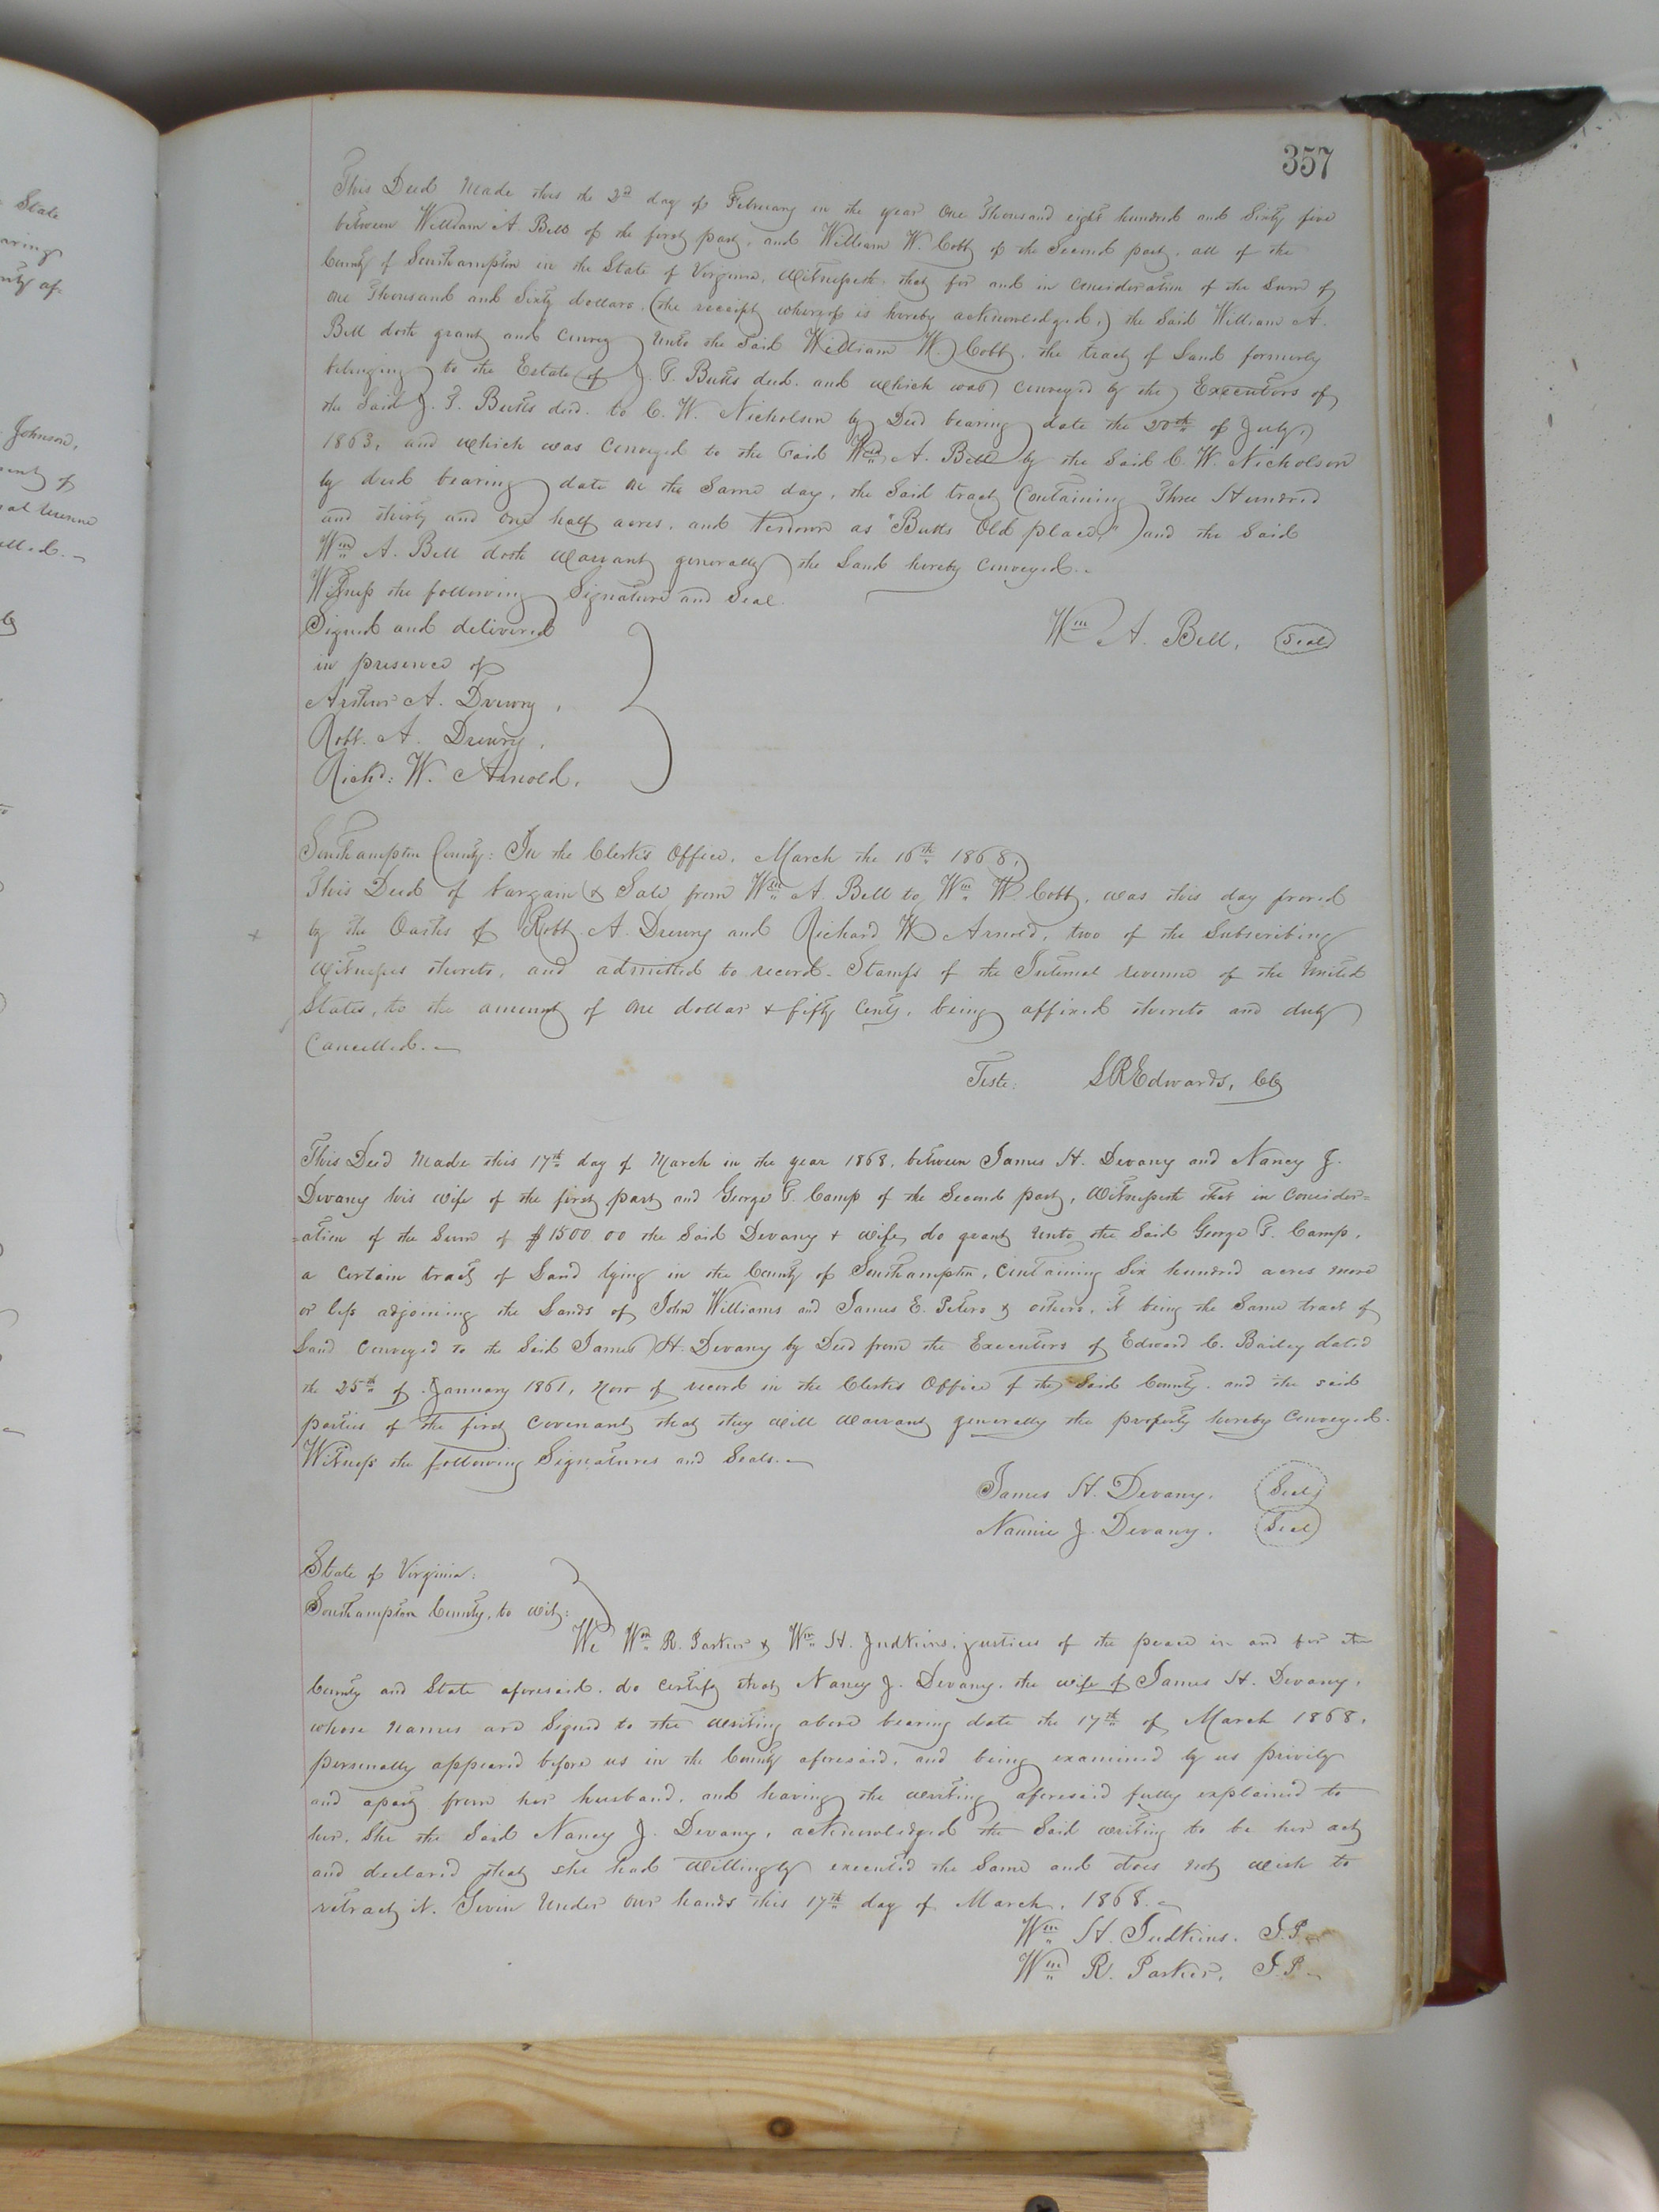 State
357
This Deed Made this the 2d day of February in the year One Thousand eight hundred and Sixty five
between William A. Bell of the first part, and William W. Cobb of the Second part, all of the
County of Southampton in the State of Virginia, Witnesseth, that for and in consideration of the Sum of
One Thousand and Sixty dollars, (the receipt whereof is hereby acknowledged,) the Said William A.
Bell doth grant and convey unto the Said William W. Cobb, the tract of Land formerly
belonging to the Estate of J. G. Butts decd. and which was conveyed by the Executors of
the Said J. G. Butts decd. to C. W. Nicholson by Deed bearing date the 20th of July,
1863, and which was conveyed to the Said Wm A. Bell by the Said C. W. Nicholson
by deed bearing date on the Same day, the Said tract Containing Three Hundred
and thirty and one half acres, and known as "Butts Old place," and the Said
Wm A. Bell doth warrant generally the Land hereby conveyed.-
Witness the following Signature and Seal.
Signed and delivered
in presence of
Arthur A. Drewry,
Robt. A. Drewry,
Richd: W. Arnold,
Wm A. Bell, Seal
Southampton County: In the Clerk's Office, March the 16th 1868,
This Deed of bargain & Sale from Wm A. Bell to Wm W. Cobb, was this day proved
by the Oaths of Robt. A. Drewry and Richard W Arnold, two of the Subscribing
x
Witnesses thereto, and admitted to record. Stamps of the Internal revenue of the United
States, to the amount of one dollar & fifty Cents, being affixed thereto and duly
Cancelled.-
Teste: LREdwards, Clk
This Deed Made this 17th day of March in the year 1868, between James H. Devany and Nancy J.
Devany his wife of the first part and George P. Camp of the Second part, Witnesseth that in Consider=
=ation of the Sum of $1500.00 the Said Devany & wife, do grant unto the Said George P. Camp,
a certain tract of Land lying in the County of Southampton, Containing Six hundred acres more
or less adjoining the Lands of John Williams and James E. Peters & others, it being the Same tract of
Land Conveyed to the Said James H. Devany by Deed from the Executors of Edward C. Bailey dated
the 25th of January 1861, Now of record in the Clerks Office of the Said County, and the said
parties of the first Covenant that they will warrant generally the property hereby Conveyed.
Witness the following Signatures and Seals.-
James H. Devany. Seal
Nannie J. Devany. Seal
State of Virginia:
Southampton County, to wit:
We Wm R. Parker & Wm H. Judkins, justices of the peace in and for the
County and State aforesaid, do certify that Nancy J. Devany, the wife of James H. Devany,
whose names are Signed to the writing above bearing date the 17th of March 1868,
personally appeared before us in the County aforesaid, and being examined by us privily
and apart from her husband, and having the writing aforesaid fully explained to
her, She the Said Nancy J. Devany, acknowledged the Said writing to be her act
and declared that she had willingly executed the Same and does not wish to
retract it. Given Under our hands this 17th day of March, 1868.-
Wm H. Judkins. J.P.
Wm R. Parker, J.P.